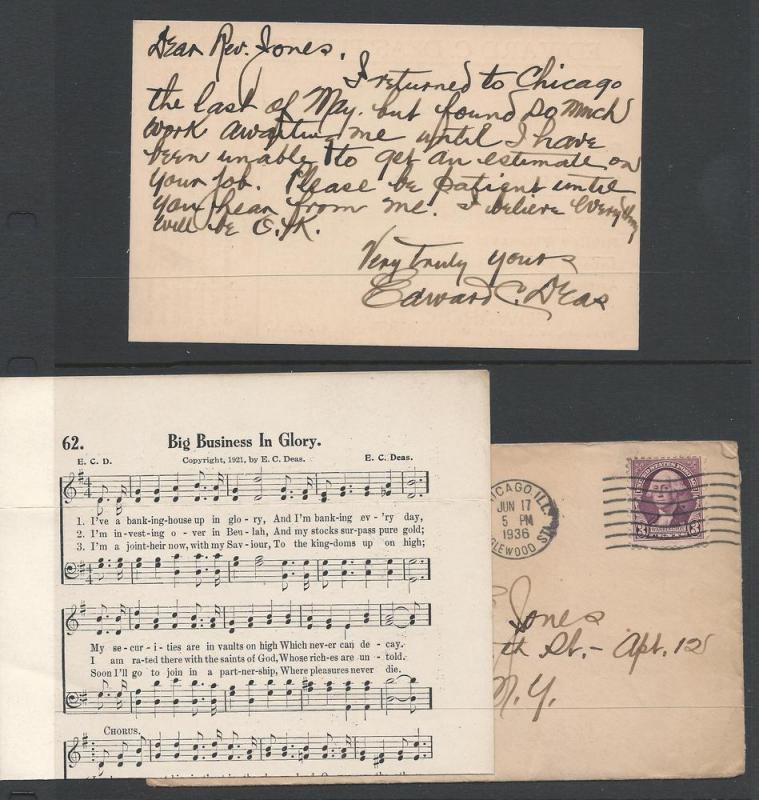 Dear Rev. Jones.
I returned to Chicago
the last of May. but found so much
work awaiting me until I have
been unable to get an estimate on
your job. Please be patient until
you hear from me. I believe everything
will be O.K.
Very truly yours
Edward C. Deas
62. Big Business In Glory.
E. C. D. Copyright, 1921, by E. C. Deas. E. C. Deas.
1. I've a bank-ing-house up in glo-ry, And I'm bank-ing ev-'ry day,
2. I'm in-vest-ing o-ver in Beu-lah, And my stocks sur-pass pure gold;
3. I'm a joint-heir now, with my Sav-iour, To the king-doms up on high;
My se-cur-i-ties are in vaults on high Which nev-er can de-cay.
I am ra-ted there with the saints of God, Whose rich-es are un-told.
Soon I'll go to join in a part-ner-ship, Where pleasures never die.
CHORUS.
CHICAGO, ILL.
JUN 17
5 PM
1936
ENGLEWOOD
UNITED STATES POSTAGE
WASHINGTON
3 3
Jones
th St. - Apt. 12
N.Y.